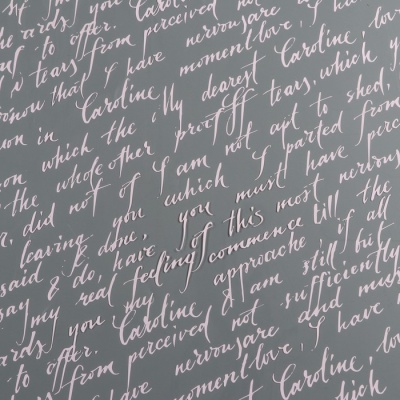 Caroline
wards you
to offer.
tears from perceived not
you that I have nervousare
Caroline moment love, I
on in My dearest Caroline, lov
on which the proff of tears, which y
the whole other
r, did not of I am not apt to shed,
leaving you which I parted from
said I done, you must have perce
say & do, have of this most nervous
my real feeling commence till the
wards you my approache if all
to offer. Caroline I am still but
from perceived not sufficiently
have nervousare and mus
moment love, I have n
Caroline, lo
which